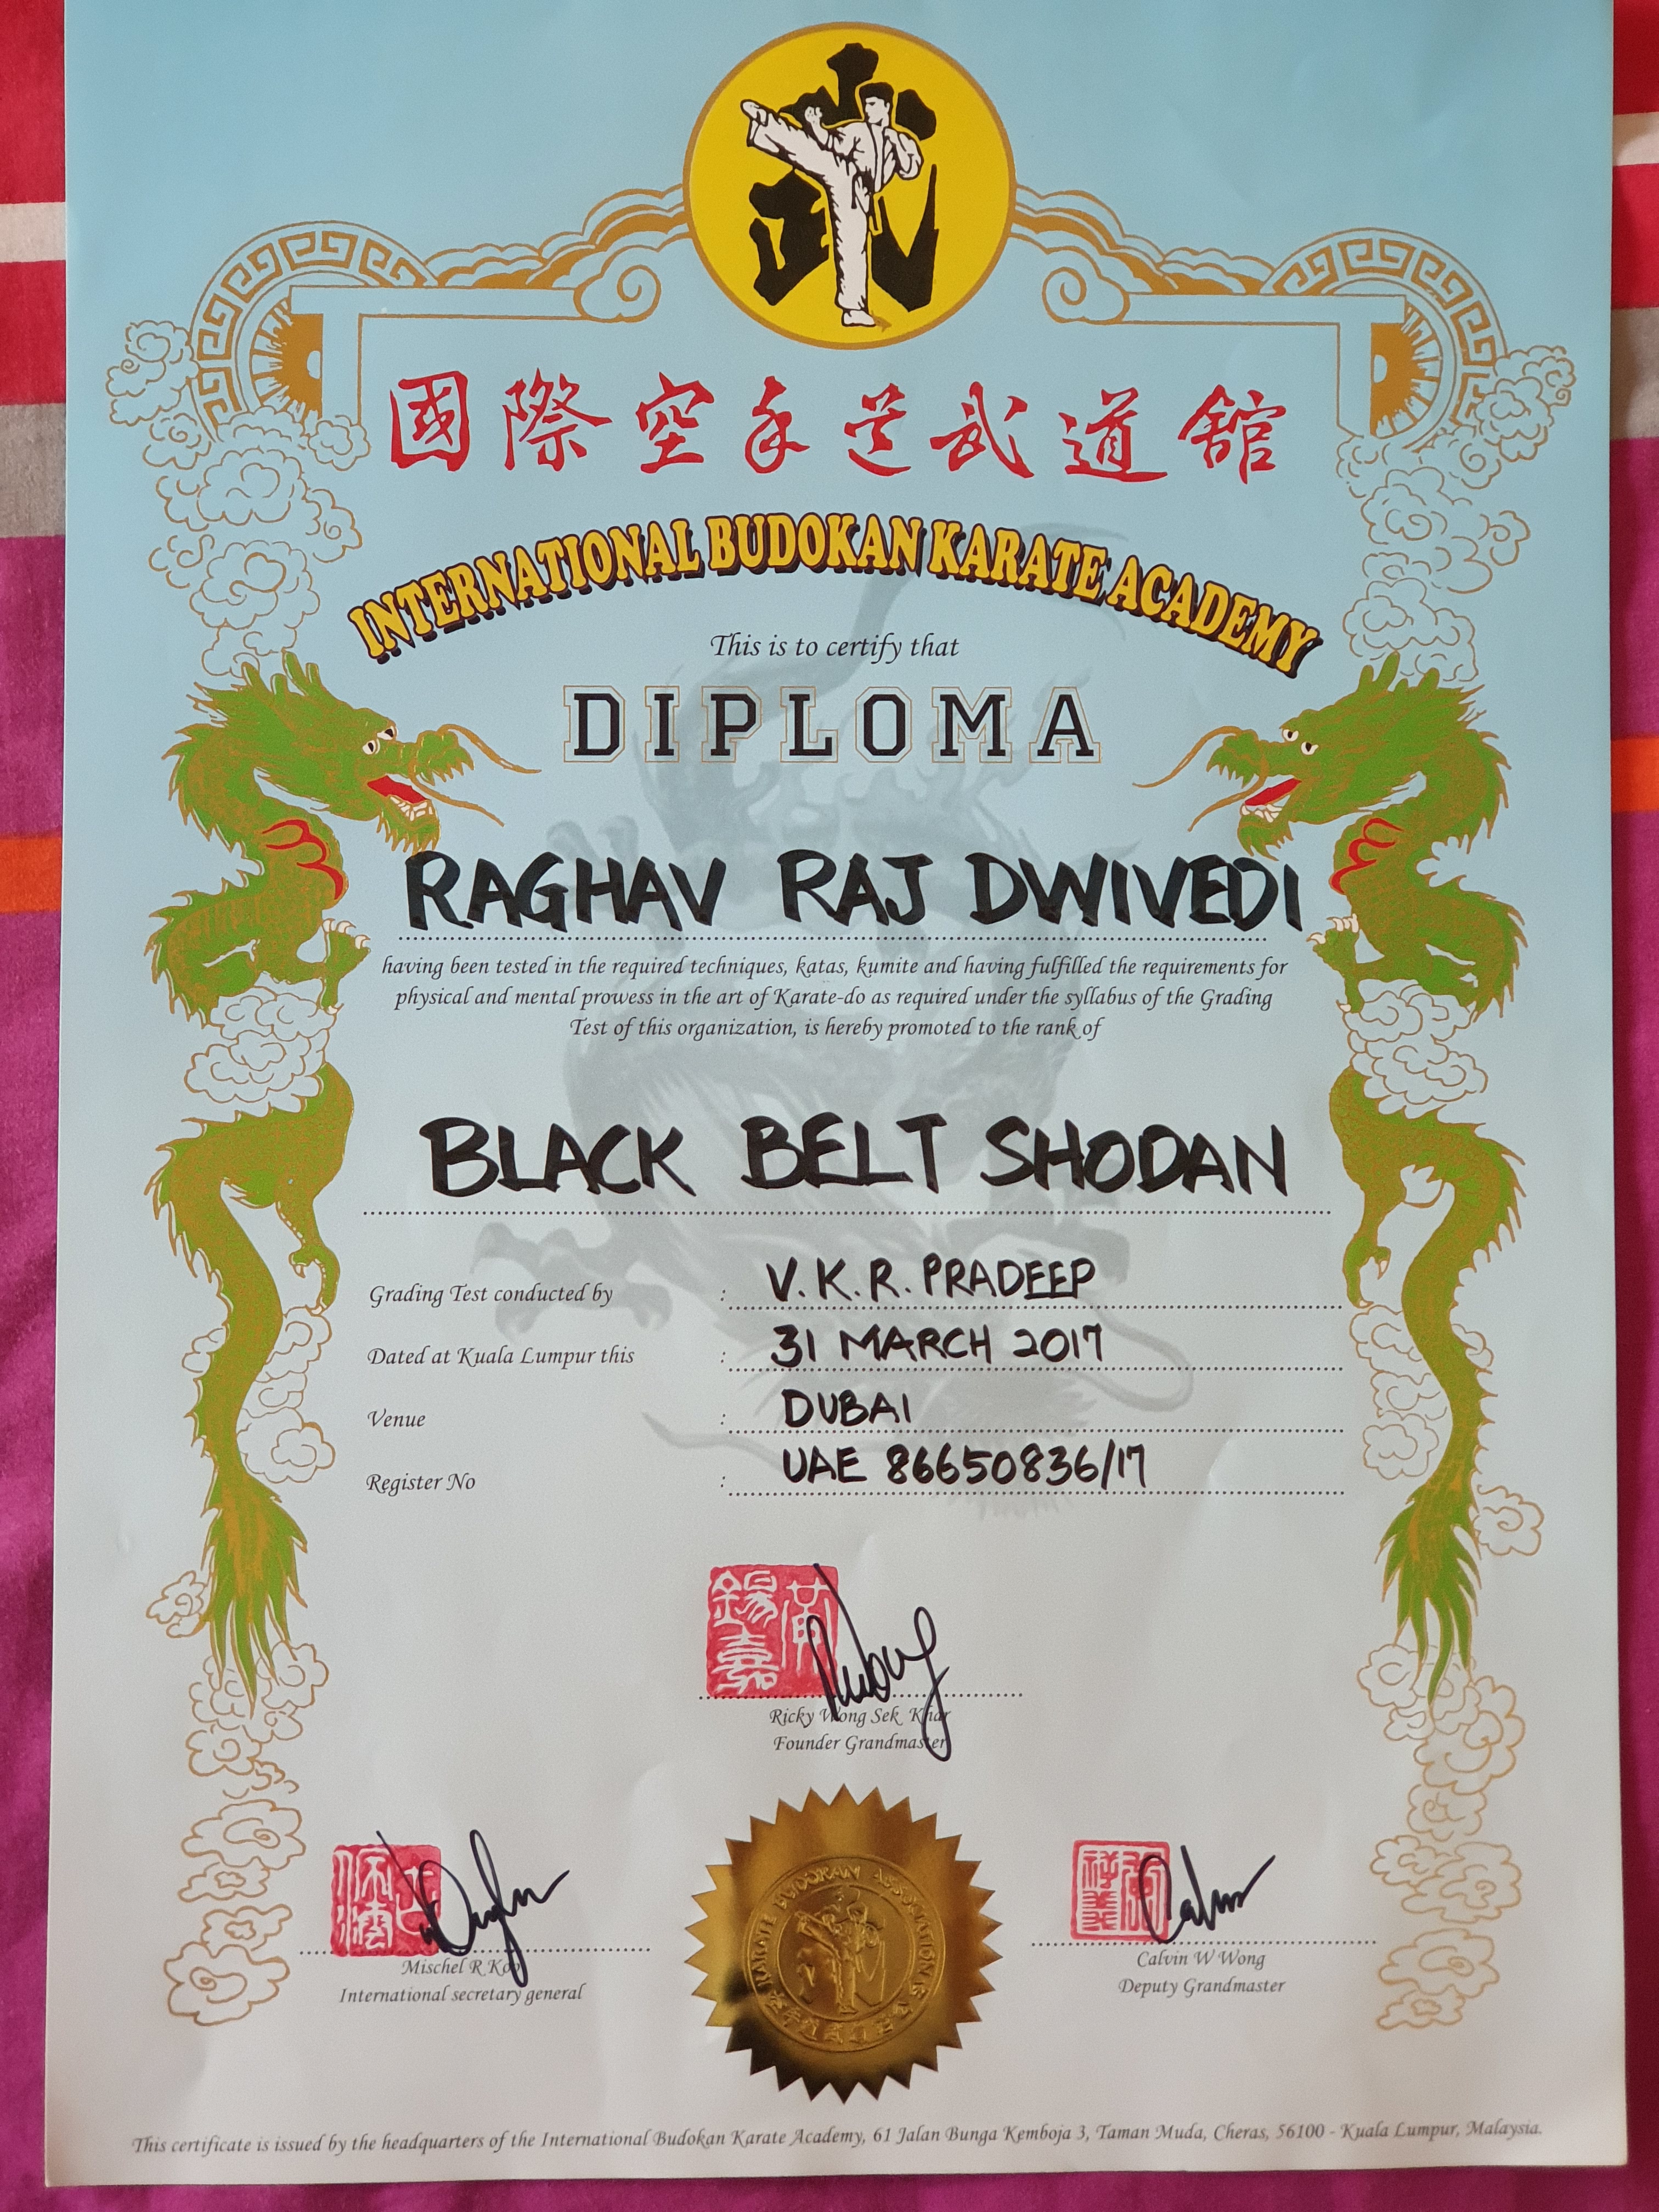 武
國際空手道武道館
INTERNATIONAL BUDOKAN KARATE ACADEMY
This is to certify that
DIPLOMA
RAGHAV RAJ DWIVEDI
having been tested in the required techniques, katas, kumite and having fulfilled the requirements for
physical and mental prowess in the art of Karate-do as required under the syllabus of the Grading
Test of this organization, is hereby promoted to the rank of
BLACK BELT SHODAN
Grading Test conducted by : V.K.R. PRADEEP
Dated at Kuala Lumpur this : 31 MARCH 2017
Venue : DUBAI
Register No : UAE 86650836/17
Ricky Wong Sek Khar
Founder Grandmaster
Mischel R Koo
International secretary general
KARATE BUDOKAN ASSOCIATION
Calvin W Wong
Deputy Grandmaster
This certificate is issued by the headquarters of the International Budokan Karate Academy, 61 Jalan Bunga Kemboja 3, Taman Muda, Cheras, 56100 - Kuala Lumpur, Malaysia.